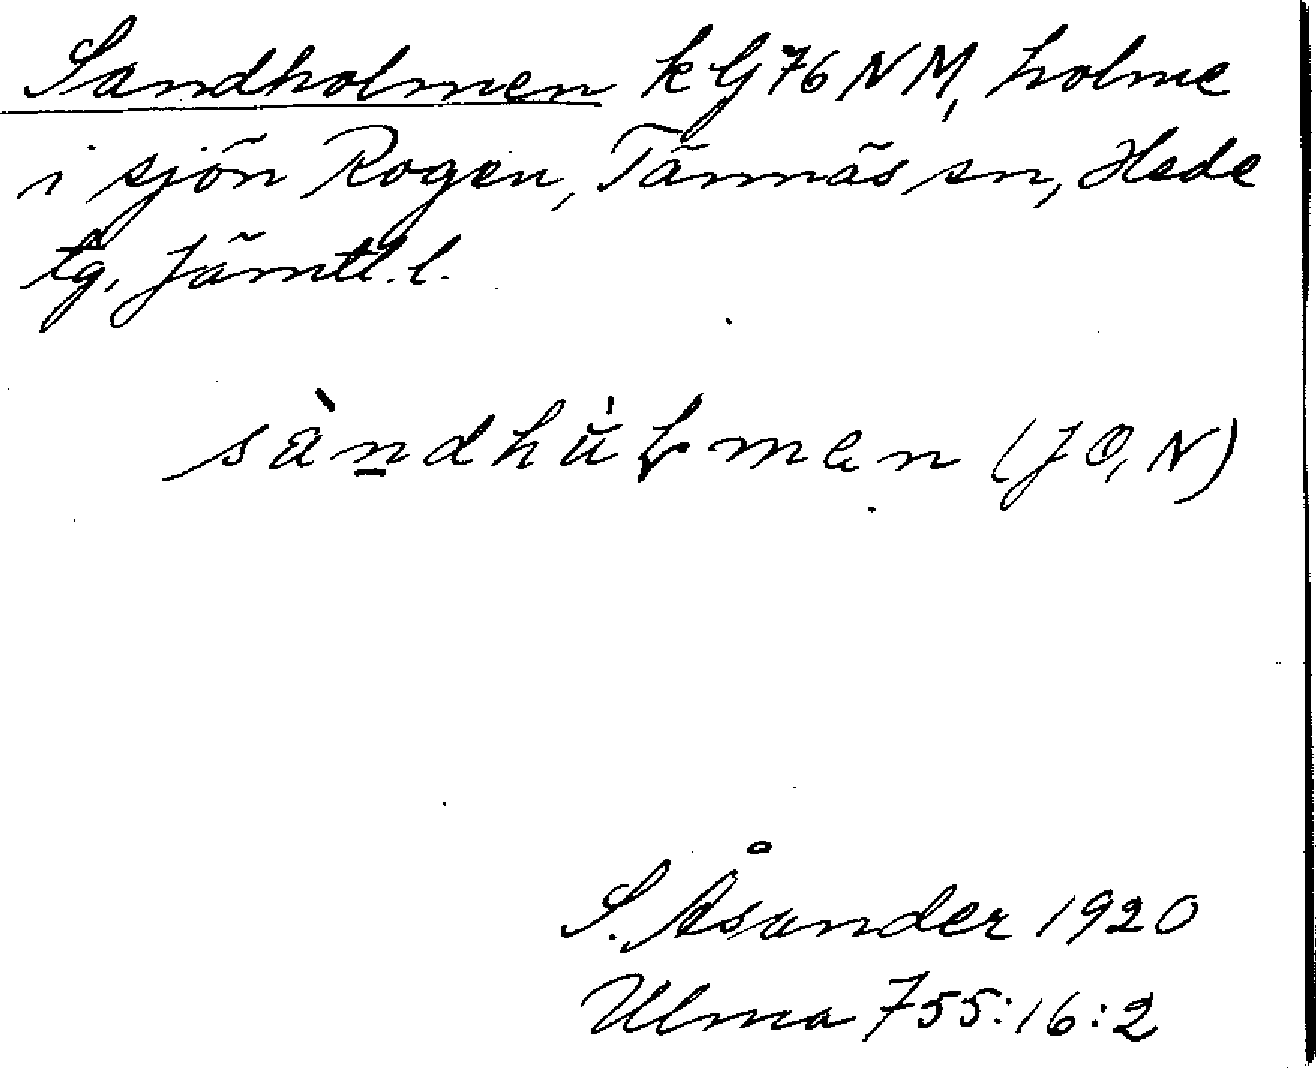 Sandholmen kG 76 NM, holme
i sjön Rogen, Tännäs sn, Hede
tg, Jämtl. l.
sàn̲dhùɫmen (JO, N)
S. Åsander 1920
Ulma 755:16:2